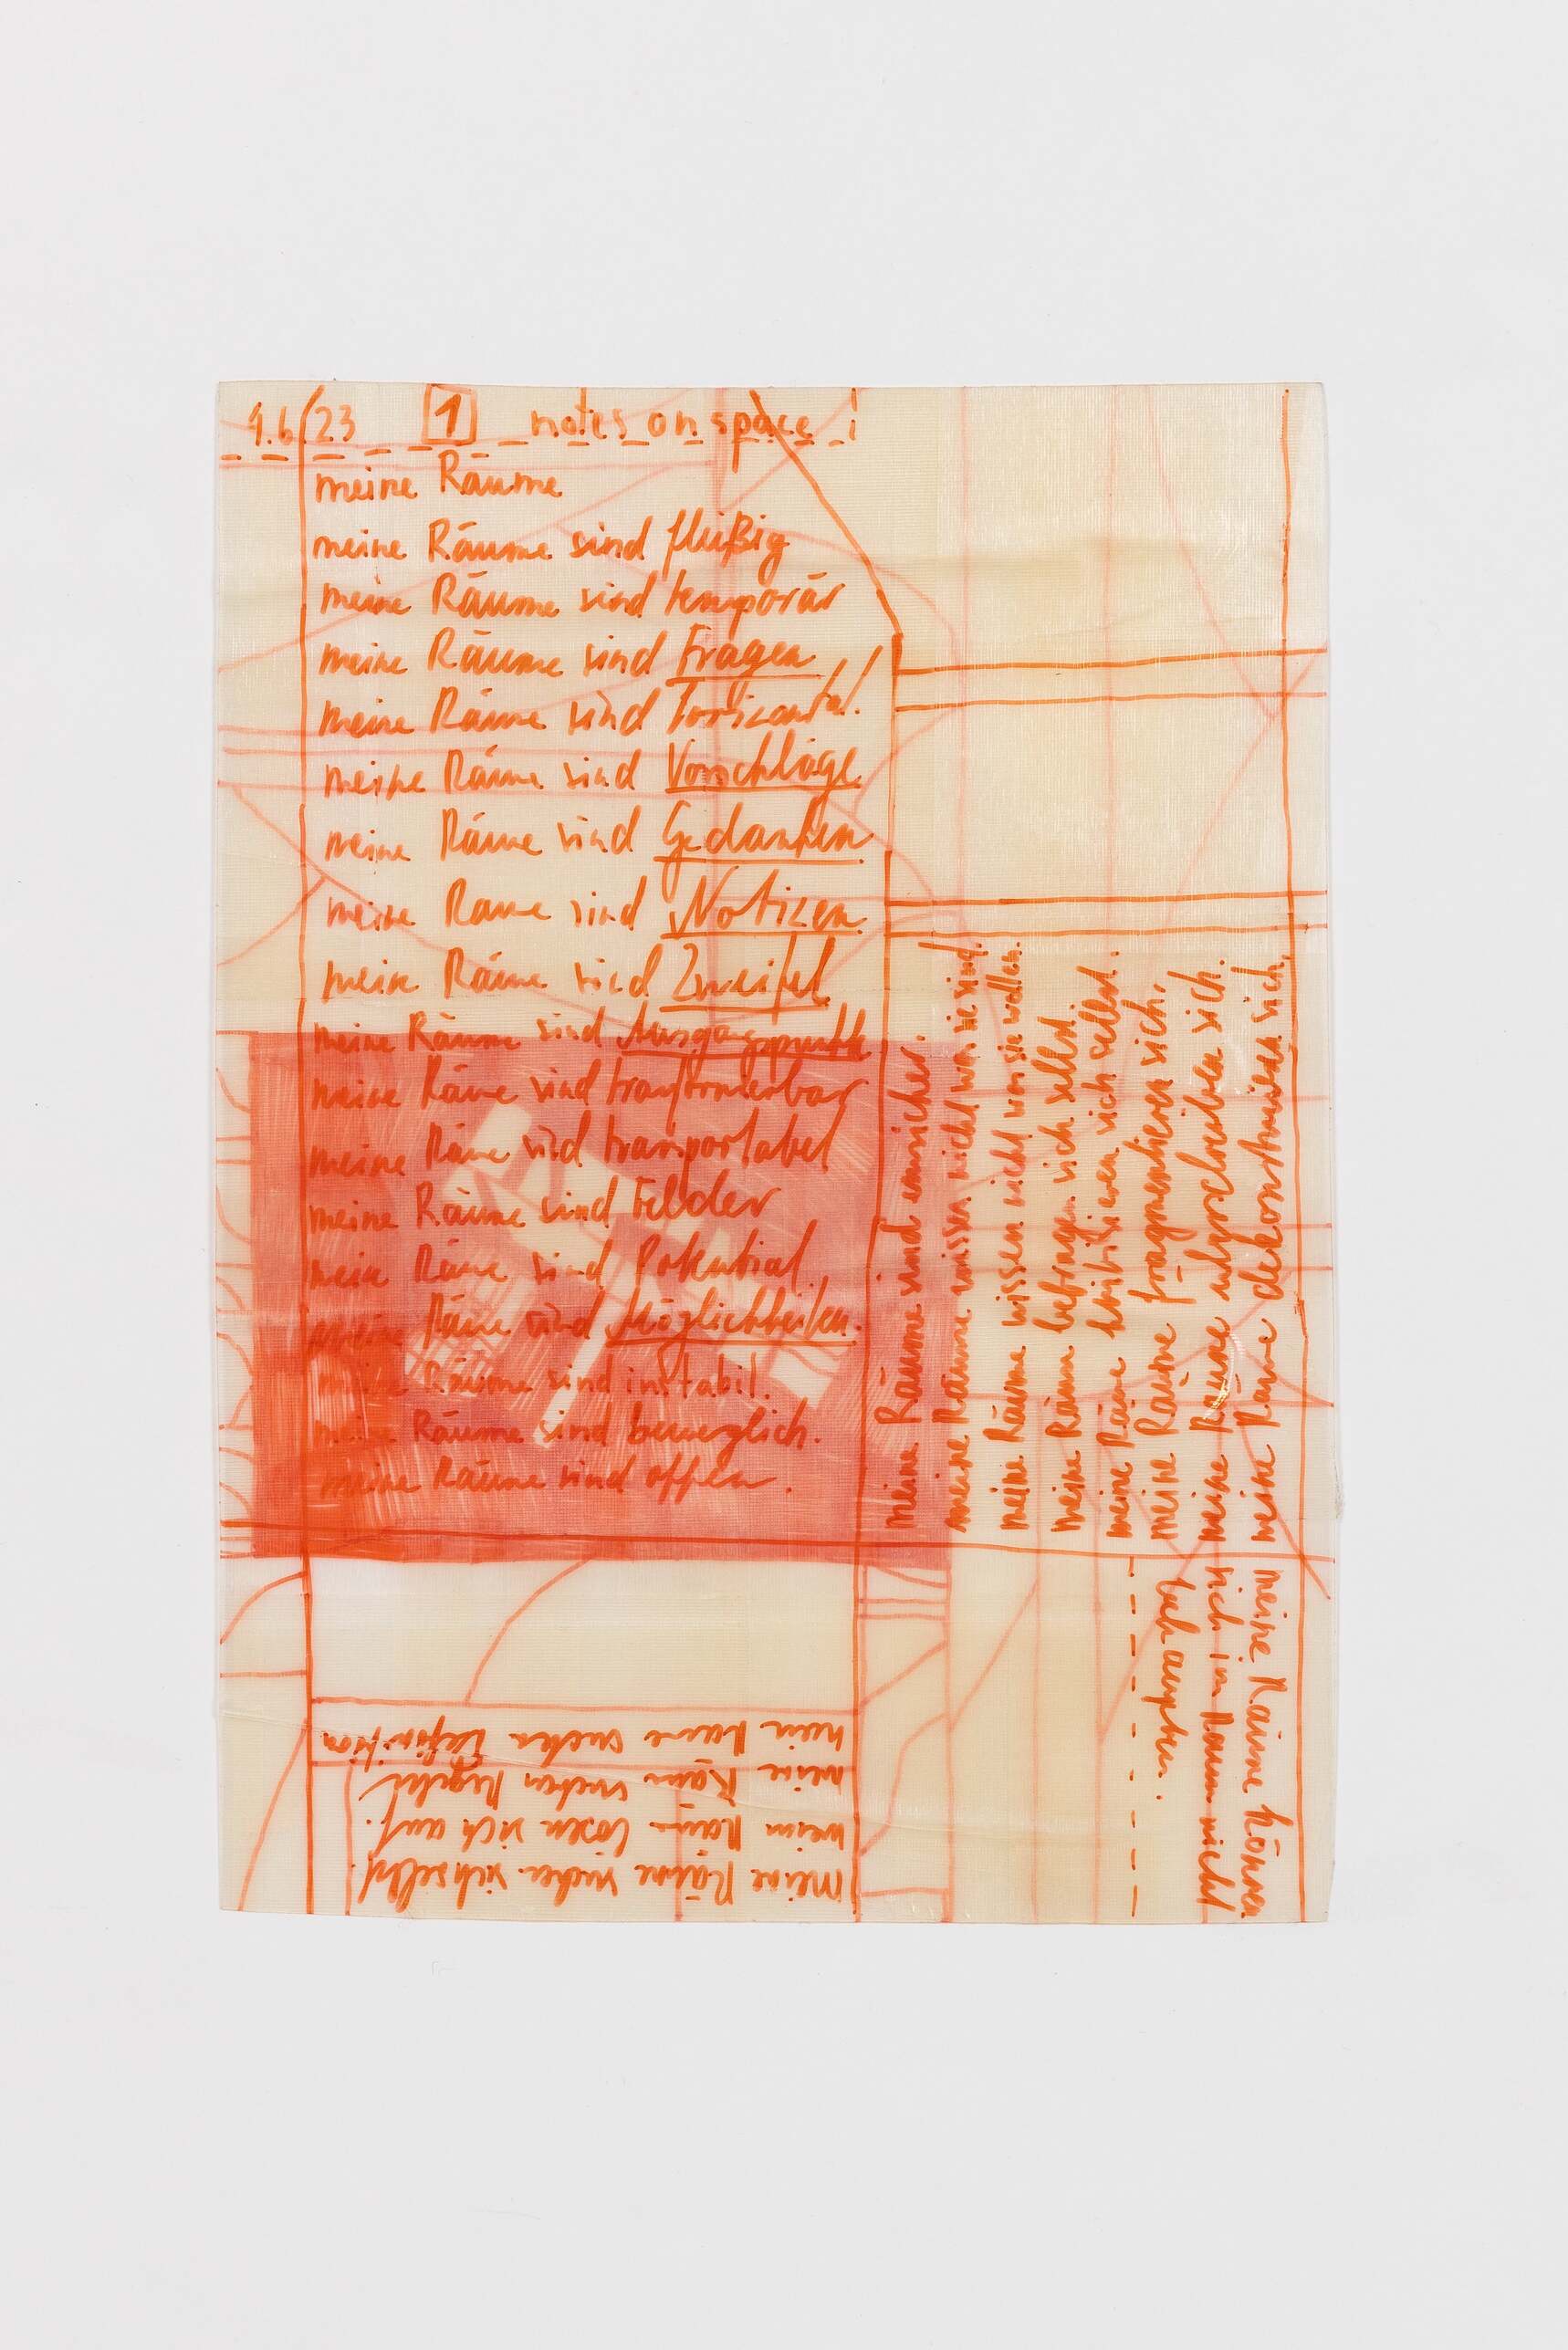 9.6.23 1 notes on space!
meine Räume
meine Räume sind fleißig
meine Räume sind temporär
meine Räume sind Fragen
meine Räume sind horizontal.
meine Räume sind Vorschläge
meine Räume sind Gedanken
meine Räume sind Notizen
meine Räume sind Zweifel
meine Räume sind Ausgangspunkte
meine Räume sind transformierbar
meine Räume sind transportabel
meine Räume sind Felder
meine Räume sind Potential.
meine Räume sind Möglichkeiten.
meine Räume sind instabil.
meine Räume sind beweglich.
meine Räume sind offen.
meine Räume sind unsicher.
meine Räume wissen nicht was sie sind.
meine Räume wissen nicht was sie wollen.
meine Räume befragen sich selbst.
meine Räume kritisieren sich selbst.
meine Räume fragmentieren sich,
meine Räume sich.
meine Räume dekonstruieren sich,
meine Räume können
sich im Raum nicht
behaupten.
meine Räume suchen sich selbst.
meine Räume lösen sich auf.
meine Räume suchen Regeln
meine Räume suchen Definition